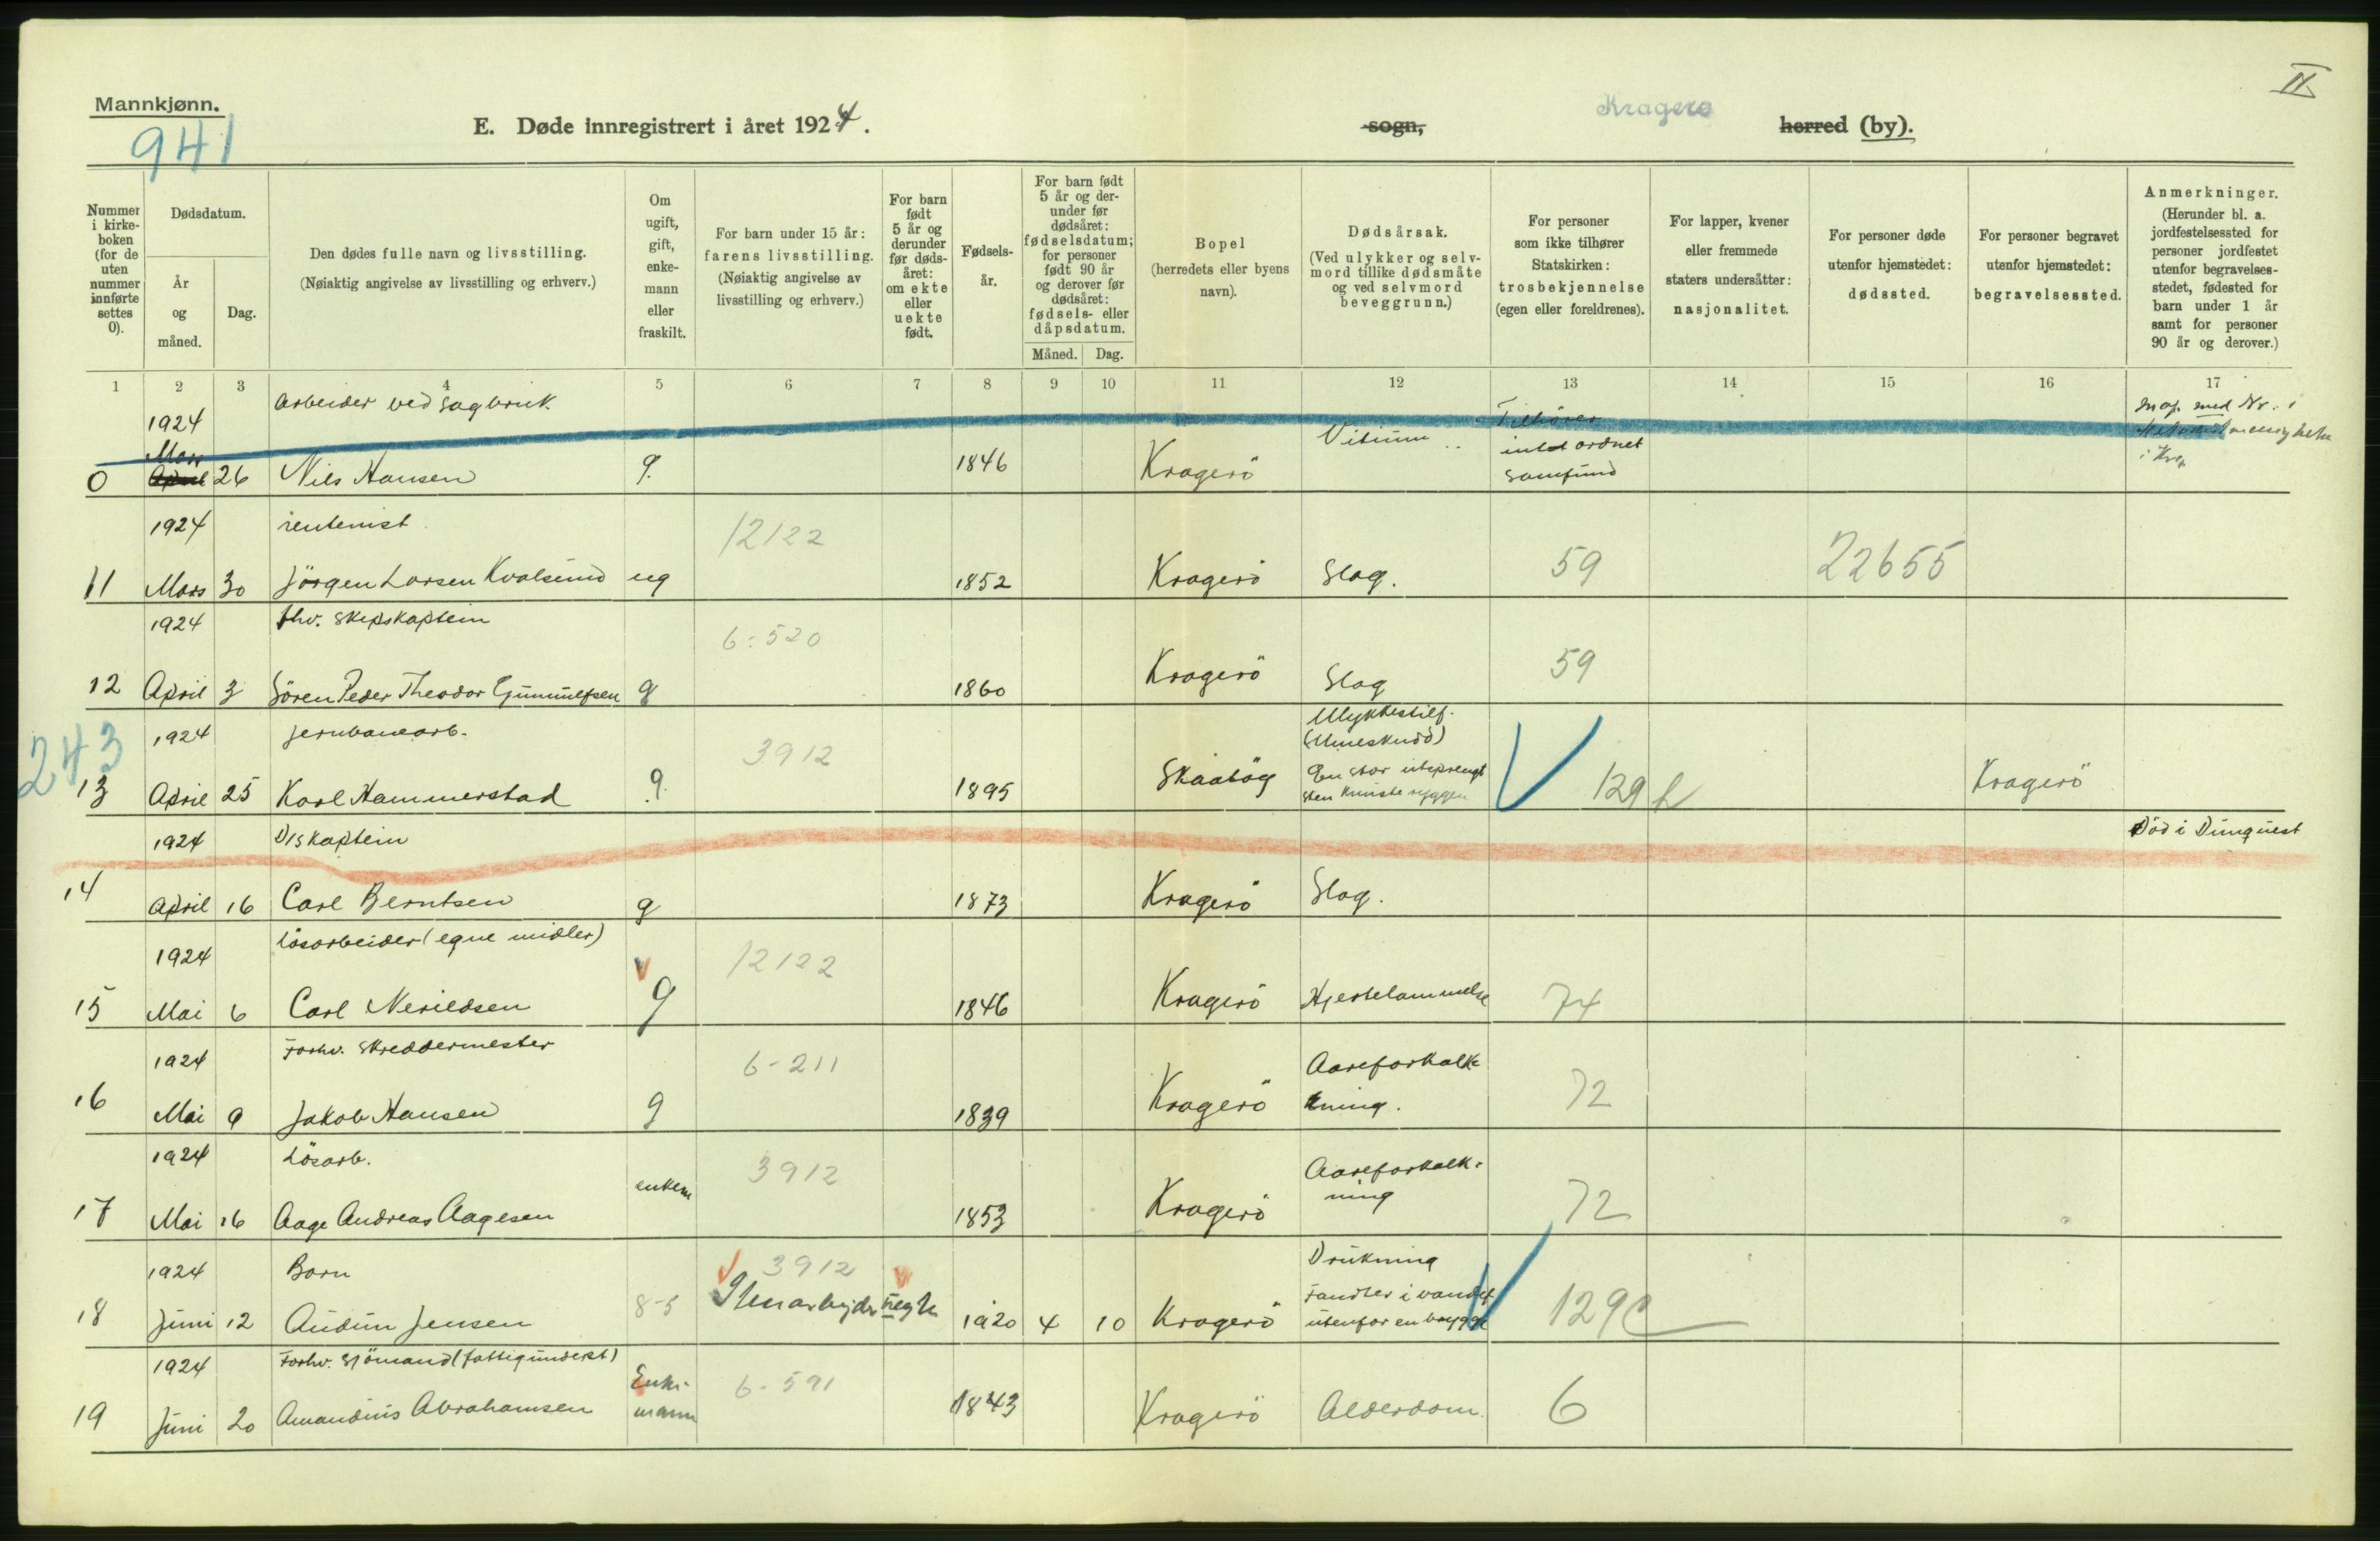 Mannkjønn.
941
E. Døde innregistrert i året 1924.
sogn,
Kragerø
herred (by).
II
Nummer i kirkeboken (for de uten nummer innførte settes 0).
Dødsdatum.
År og måned.
Dag.
Den dødes fulle navn og livsstilling.
(Nøiaktig angivelse av livsstilling og erhverv.)
Om ugift, gift, enkemann eller fraskilt.
For barn under 15 år: farens livsstilling.
(Nøiaktig angivelse av livsstilling og erhverv.)
For barn født 5 år og derunder før dødsåret: om ekte eller uekte født.
Fødselsår.
For barn født 5 år og derunder før dødsåret: fødselsdatum; for personer født 90 år og derover før dødsåret: fødsels- eller dåpsdatum.
Måned. Dag.
Bopel
(herredets eller byens navn).
Dødsårsak.
(Ved ulykker og selvmord tillike dødsmåte og ved selvmord beveggrunn.)
For personer som ikke tilhører Statskirken: trosbekjennelse (egen eller foreldrenes).
For lapper, kvener eller fremmede staters undersåtter: nasjonalitet.
For personer døde utenfor hjemstedet: dødssted.
For personer begravet utenfor hjemstedet: begravelsessted.
Anmerkninger.
(Herunder bl. a. jordfestelsessted for personer jordfestet utenfor begravelsesstedet, fødested for barn under 1 år samt for personer 90 år og derover.)
1 2 3 4 5 6 7 8 9 10 11 12 13 14 15 16 17
1924 arbeider ved sagbruk Tilhører med Nr.
0 Mars April 26 Nils Hansen g. 1846 Kragerö Vitium intet ordnet samfund
1924 rentenist 12122
11 Mars 30 Jörgen Larsen Kvalsund ug 1852 Kragerö Slag. 59 22655
1924 fhv. skipskaptein 6-520
12 April 3 Sören Peder Theodor Gunnulfsen g 1860 Kragerö Slag 59
243
1924 jernbanearb. 3912 Ulykkestilf. (Mineskudd)
13 April 25 Karl Hammerstad g. 1895 Skaatöy En stor utsprengt sten knuste ryggen 129 Kragerö
1924 D/skaptein Död i
14 April 16 Carl Berntsen g 1873 Kragerö Slag.
1924 Lösarbeider (egne midler) 12122
15 Mai 6 Carl g 1846 Kragerö Hjertelammelse 74
1924 Forhv. Skreddermester 6-211
16 Mai 9 Jakob Hansen g 1839 Kragerö Aareforkalkning. 72
1924 Lösarb. 3912
17 Mai 16 Aage Andreas Aagesen enkem 1853 Kragerö Aareforkalkning 72
1924 Barn 3912 Drukning
18 Juni 12 Audun Jensen 8-5 Stenarbejder uegte 1920 4 10 Kragerö Fandtes i vandet utenfor en brygge 129c
1924 Forhv. Sjömand (fattigunderst) 6-591
19 Juni 20 Amandus Abrahamsen Enkemann 1843 Kragerö Alderdom. 6